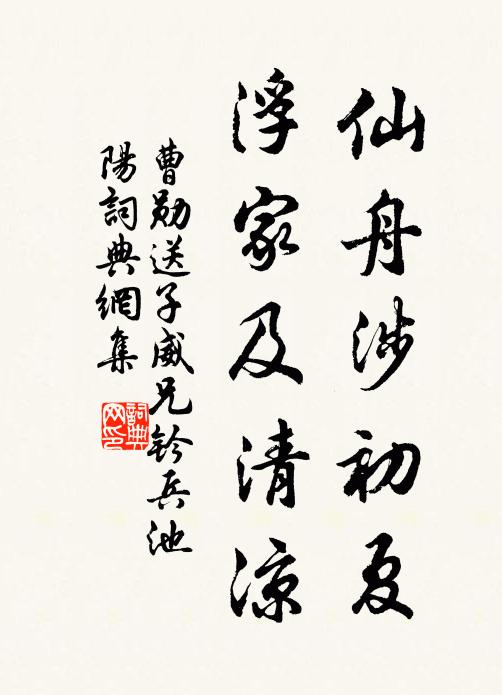 仙舟涉初夏
浮家及清凉
曹勋送子威兄钤兵池
陽詞典網集
詞典网印